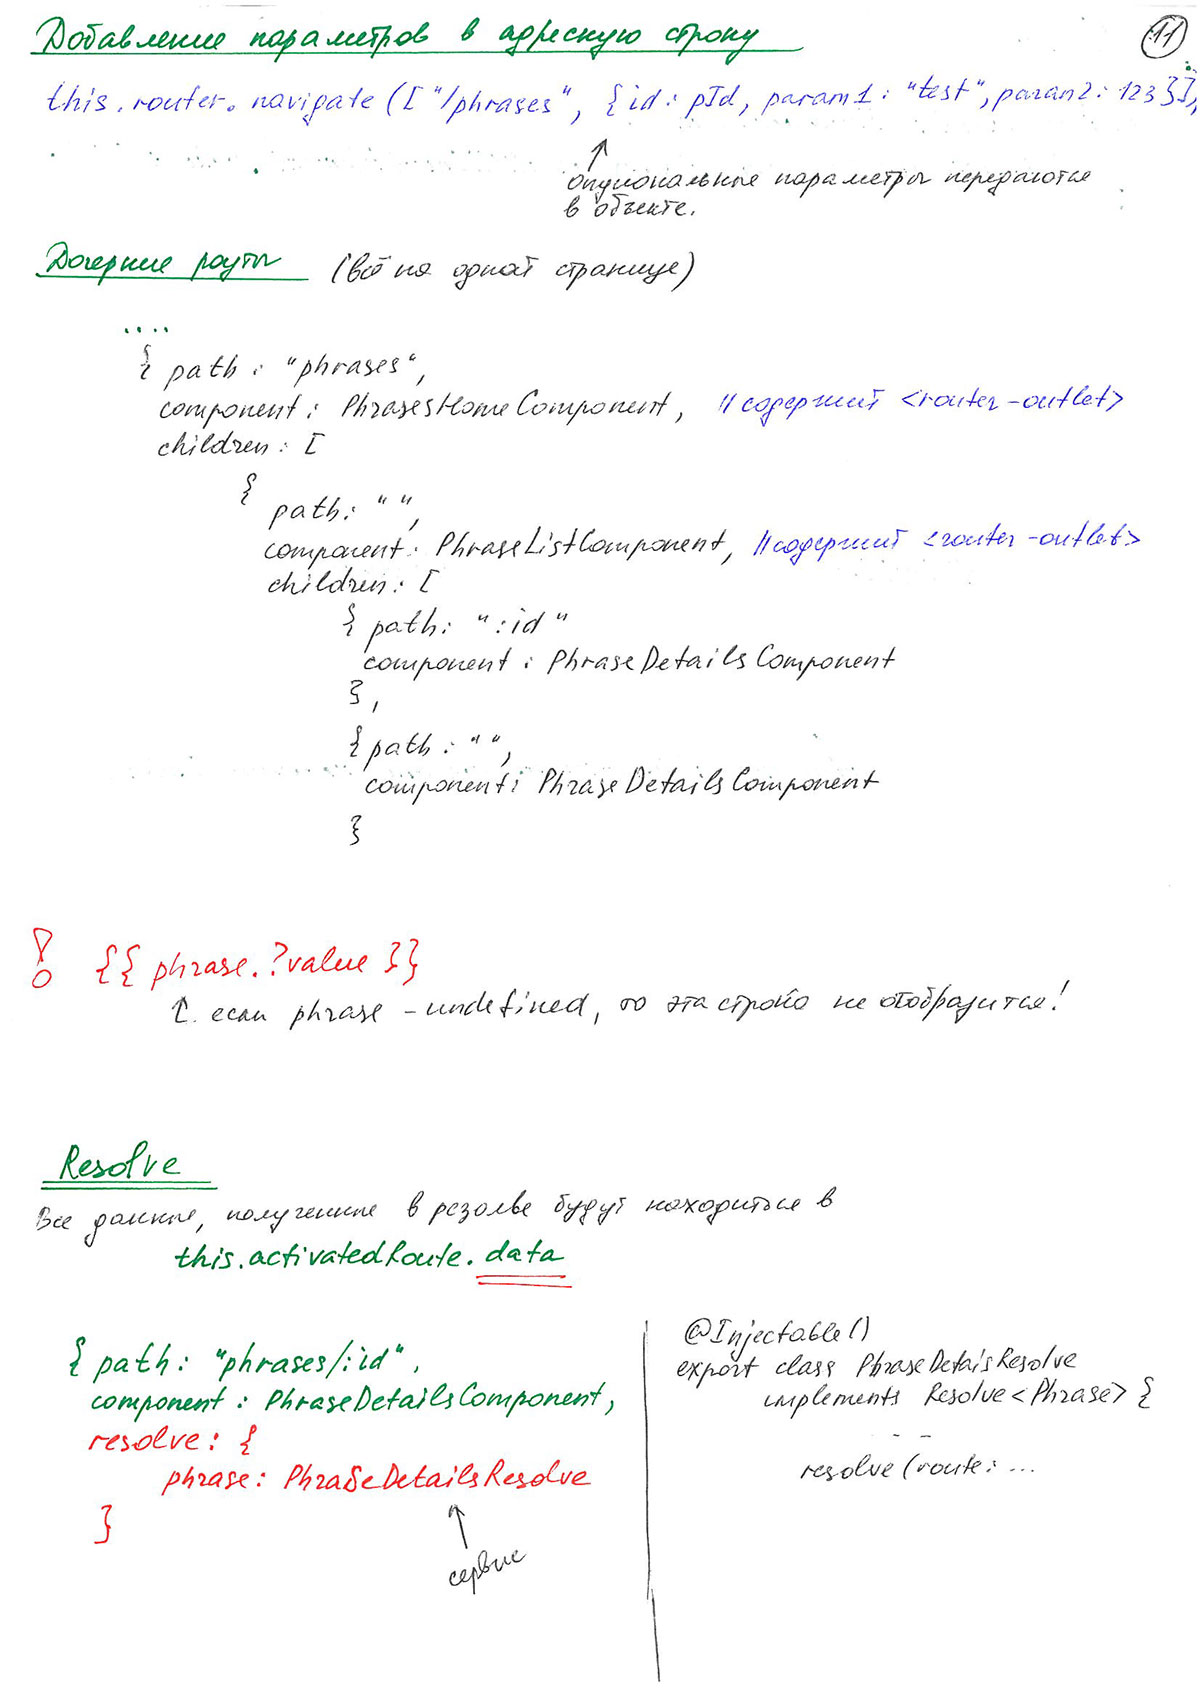 Добавление параметров в адресную строку
11
this.router.navigate(["/phrases", {id: pId, param1: "test", param2: 123}],
↑
опциональные параметры передаются
в объекте.
Дочерние роуты (всё на одной странице)
....
{ path: "phrases",
component: PhrasesHomeComponent, //содержит <router-outlet>
children: [
{
path: "",
component: PhraseListComponent, //содержит <router-outlet>
children: [
{ path: ":id"
component: PhraseDetailsComponent
},
{ path: "",
component: PhraseDetailsComponent
}
! {{ phrase.?value }}
↑ если phrase - undefined, то эта строка не отобразится!
Resolve
Все данные, полученные в резолве будут находиться в
this.activatedRoute.data
{ path: "phrases/:id",
component: PhraseDetailsComponent,
resolve: {
phrase: PhraseDetailsResolve
}
↑
сервис
@Injectable()
export class PhraseDetailsResolve
implements Resolve<Phrase> {
- -
resolve(route: ...